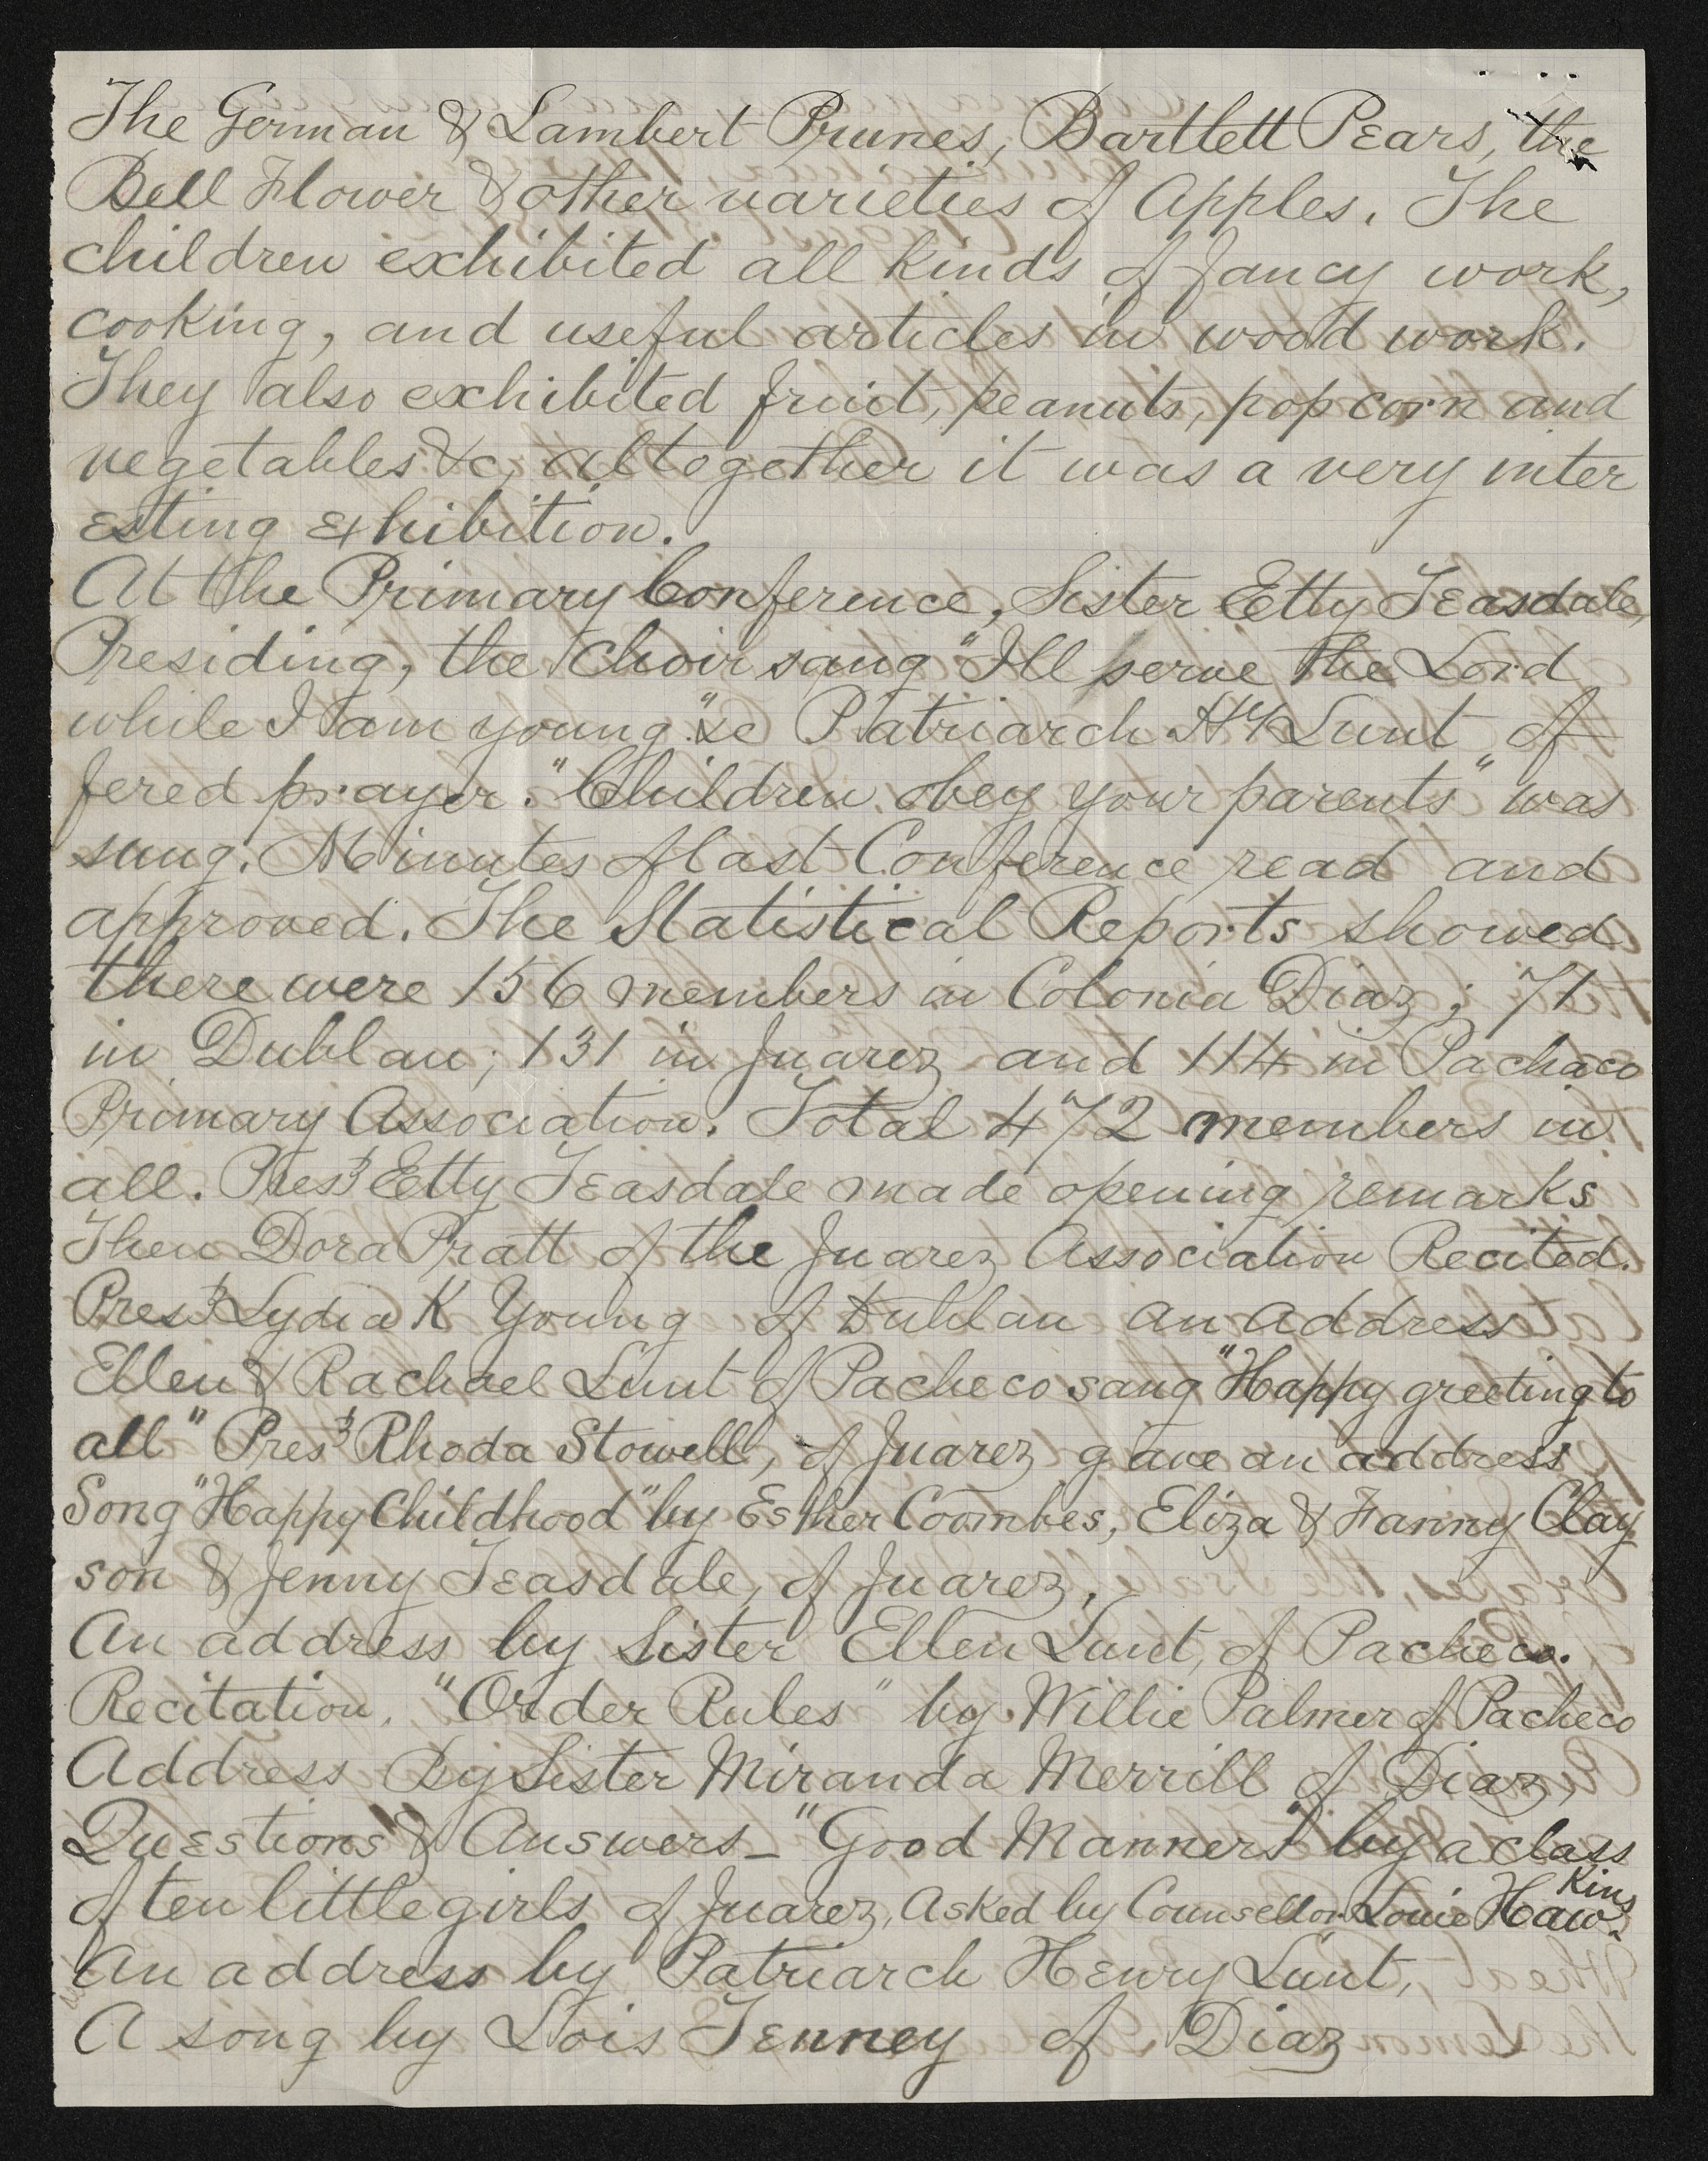 The German & Lambert Prunes, Bartlett Pears, the
Bell Flower & other varieties of Apples. The
children exhibited all kinds of fancy work,
cooking, and useful articles in wood work.
They also exhibited fruit, peanuts, pop corn and
vegetables &c, altogether it was a very inter
esting exhibition.
At the Primary Conference, Sister Etty Teasdale,
Presiding, the choir sang "I'll serve the Lord
while I am young" &c Patriarch Hy Lunt of
fered prayer. "Children obey your parents" was
sung. Minutes of last Conference read and
approved. The Statistical Reports showed
there were 156 members in Colonia Diaz; 71
in Dublan; 131 in Juarez and 114 in Pacheco
Primary Association. Total 472 members in
all. Prest Etty Teasdale made opening remarks
Then Dora Pratt of the Juarez Association Recited.
Prest Lydia K Young of Dublan an address
Ellen & Rachael Lunt of Pacheco sang "Happy greeting to
all" Prest Rhoda Stowell, of Juarez gave an address
Song "Happy Childhood" by Esther Coombes, Eliza & Fanny Clay
son & Jenny Teasdale, of Juarez.
An address by Sister Ellen Lunt, of Pacheco.
Recitation. "Order Rules" by Willie Palmer of Pacheco
Address By Sister Miranda Merrill of Diaz,
Questions & Answers - "Good Manners" by a class
of ten little girls of Juarez, Asked by Counsellor Louie Haw
kins.
An address by Patriarch Henry Lunt,
A song by Lois Tenney of Diaz